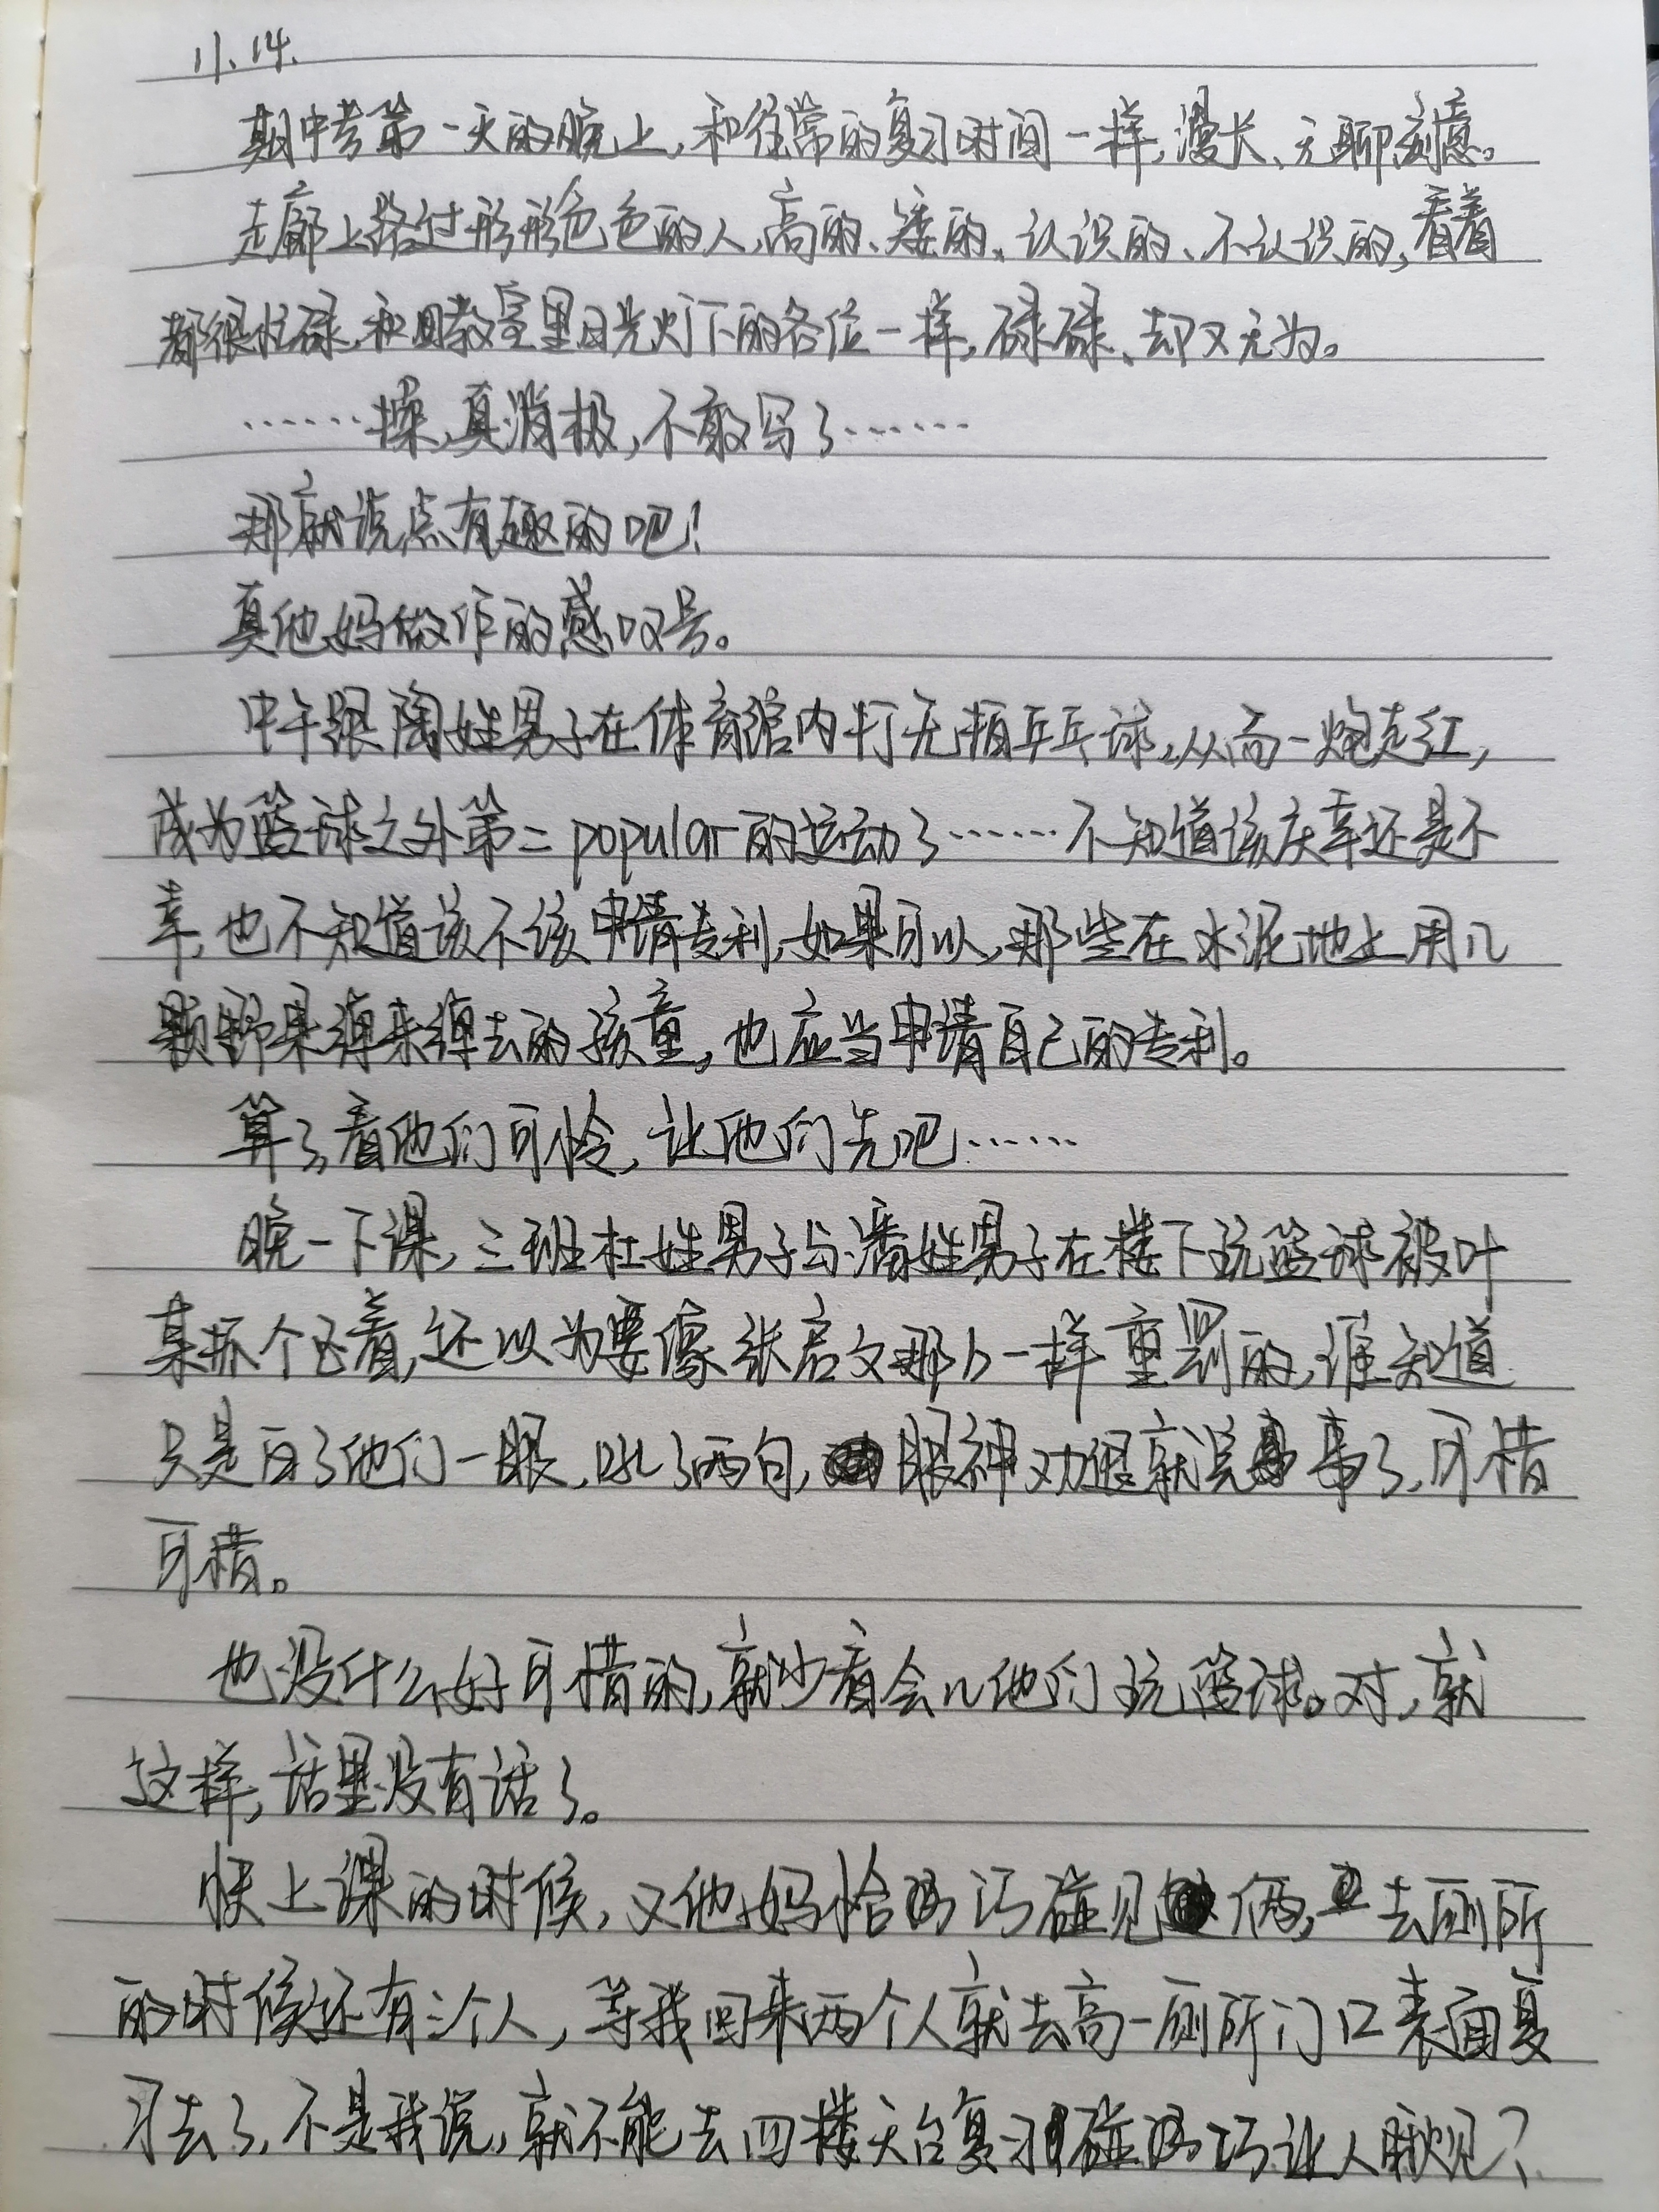 11.14.
期中考第一天的晚上,和往常的复习时间一样,漫长、无聊、刻意。
走廊上路过形形色色的人,高的、矮的、认识的、不认识的,看着
都很忙碌,和教室里日光灯下的各位一样,碌碌、却又无为。
……操,真消极,不敢写了……
那就说点有趣的吧!
真他妈做作的感叹号。
中午跟陶姓男子在体育馆内打无拍乒乓球,从而一炮走红,
成为篮球之外第二popular的运动了……不知道该庆幸还是不
幸,也不知道该不该申请专利,如果可以,那些在水泥地上用几
颗野果弹来弹去的孩童,也应当申请自己的专利。
算了,看他们可怜,让他们先吧……
晚一下课,三班杜姓男子与潘姓男子在楼下玩篮球被叶
某抓个正着,还以为要像张启文那卜一样重罚的,谁知道
只是白了他们一眼,吼了两句,眼神劝退就完事了,可惜
可惜。
也没什么好可惜的,就少看会儿他们玩篮球。对,就
这样,话里没有话了。
快上课的时候,又他妈恰巧碰见俩,去厕所
的时候还有三个人,等我回来两个人就去高一厕所门口表面复
习去了,不是我说,就不能去四楼天台复习碰巧让人瞅见?